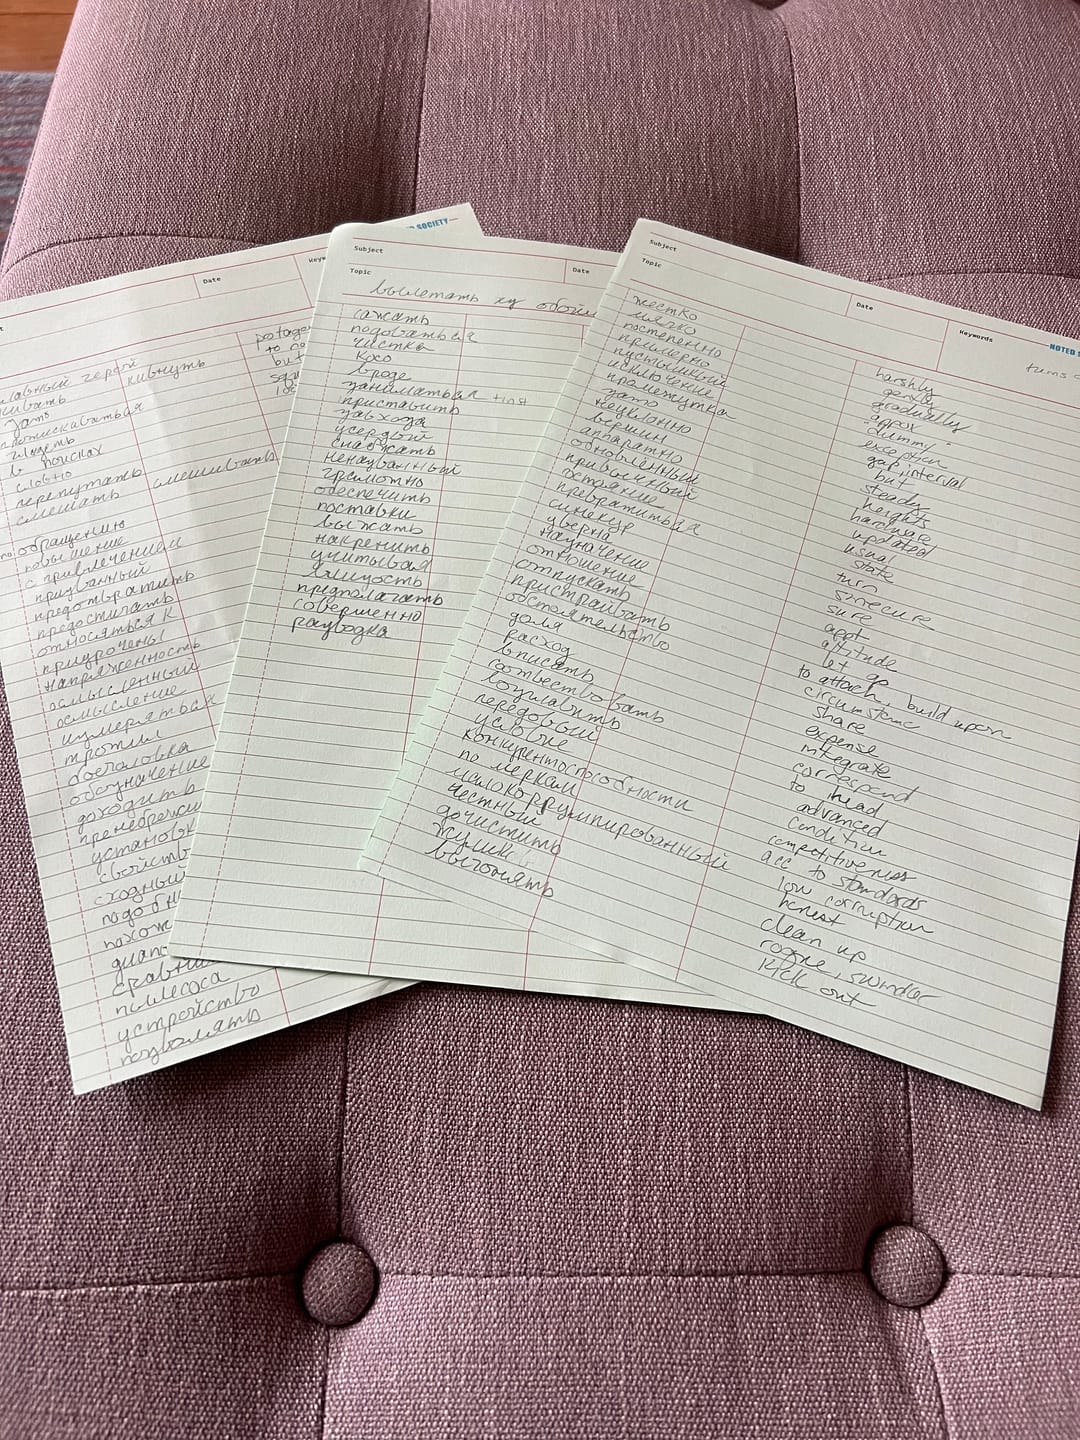 SOCIETY
Date
Keyw
главный герой
кивнуть
кивать
зато
протискиваться
гладеть
в поисках
словно
перепутать
смешать
смешивать
potage
to no
but
squ
по обращению
повышение
с привлечением
призванный
предотвратить
предостигать
относяться к
приурочены
напряженность
осмысленный
осмысление
измеряться
тротил
боеголовка
обозначение
доходить
пренебречи
установк
свойств
сходный
подобн
похож
диапо
сравни
пилесоса
устройство
позволять
Subject
Topic
Date
вылетать из обойм
сажать
подоваться
чистка
косо
вроде
заниматься + inst
приставить
завхоза
усердый
снабжать
ненаукванный
грамотно
обеспечить
поставки
выжать
накренить
учитывая
предполагать
совершенно
разводка
Subject
Topic
Date
Keywords
NOTED
жестко
мягко
постепенно
примерно
пустышкой
исключение
промежутка
зато
неуклонно
вершин
аппаратно
обновлённый
привычный
остояние
превратиться
синекур
уверна
назначение
отношение
отпускать
пристраивать
обстоятельство
доля
расход
вписать
соотвествовать
возглавить
передовой
условие
конкурентоспособности
по меркам
малокоррумпированный
честный
дочистить
жулик
выгонять
harshly
gently
gradually
approx.
dummy
exception
gap, interval
but
steady
heights
hardware
updated
usual
state
turn
sinecure
sure
appt
attitude
let go
to attach, build upon
circumstance
share
expense
integrate
correspond
to head
advanced
condition
competitiveness
acc to standards
low corruption
honest
clean up
rogue, swindler
kick out